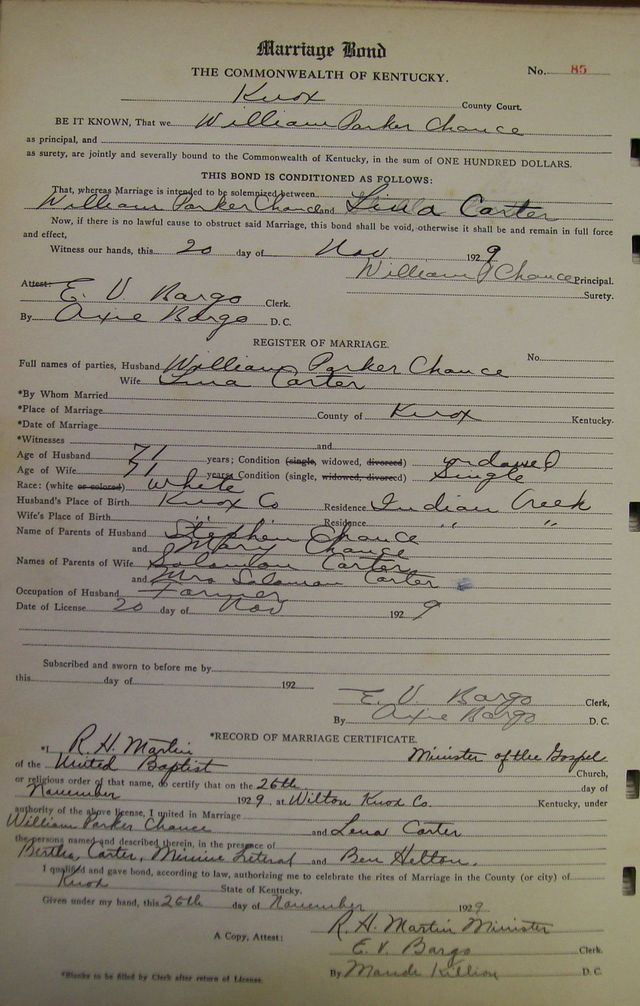 Marriage Bond
THE COMMONWEALTH OF KENTUCKY.
No. 85
Knox County Court.
BE IT KNOWN, That we William Parker Chance
as principal, and
as surety, are jointly and severally bound to the Commonwealth of Kentucky, in the sum of ONE HUNDRED DOLLARS.
THIS BOND IS CONDITIONED AS FOLLOWS:
That, whereas Marriage is intended to be solemnized between
William Parker Chance and Lina Carter
Now, if there is no lawful cause to obstruct said Marriage, this bond shall be void, otherwise it shall be and remain in full force
and effect,
Witness our hands, this 20 day of Nov 1929
William P Chance Principal.
Surety.
Attest: E. V. Bargo Clerk.
By Axie Bargo D. C.
REGISTER OF MARRIAGE.
No.
Full names of parties, Husband William Parker Chance
Wife Lina Carter
*By Whom Married
*Place of Marriage County of Knox Kentucky.
*Date of Marriage
*Witnesses and
Age of Husband 71 years; Condition (single, widowed, divorced) widowed
Age of Wife 71 years; Condition (single, widowed, divorced) Single
Race: (white or colored) White
Husband's Place of Birth Knox Co Residence Indian Creek
Wife's Place of Birth " " Residence " "
Name of Parents of Husband Stephen Chance
and Mary Chance
Names of Parents of Wife Soloman Carter
and Mrs Soloman Carter
Occupation of Husband Farmer
Date of License 20 day of Nov 1929
Subscribed and sworn to before me by
this day of 192
E. V. Bargo Clerk,
By Axie Bargo D. C.
*RECORD OF MARRIAGE CERTIFICATE.
*I R. H. Martin Minister of the Gospel
of the United Baptist Church,
or religious order of that name, do certify that on the 26th day of
November 1929, at Wilton Knox Co. Kentucky, under
authority of the above license, I united in Marriage
William Parker Chance and Lena Carter
the persons named and described therein, in the presence of
Bertha Carter, Minnie and Ben Helton.
I qualified and gave bond, according to law, authorizing me to celebrate the rites of Marriage in the County (or city) of
Knox State of Kentucky.
Given under my hand, this 26th day of November 1929
R. H. Martin Minister
A Copy, Attest: E. V. Bargo Clerk.
By Maude Killion D. C.
*Blanks to be filled by Clerk after return of License.